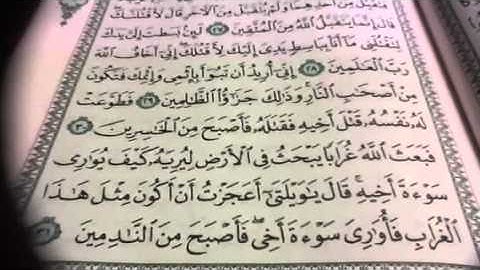 فَتُقُبِّلَ مِنْ أَحَدِهِمَا وَلَمْ يُتَقَبَّلْ مِنَ ٱلْأَخَرِ قَالَ لَأَقْتُلَنَّكَ
قَالَ إِنَّمَا يَتَقَبَّلُ ٱللَّهُ مِنَ ٱلْمُتَّقِينَ ٢٧ لَئِنۢ بَسَطتَ إِلَىَّ يَدَكَ
لِتَقْتُلَنِى مَآ أَنَا۠ بِبَاسِطٍ يَدِىَ إِلَيْكَ لِأَقْتُلَكَ إِنِّىٓ أَخَافُ ٱللَّهَ
رَبَّ ٱلْعَٰلَمِينَ ٢٨ إِنِّىٓ أُرِيدُ أَن تَبُوٓأَ بِإِثْمِى وَإِثْمِكَ فَتَكُونَ
مِنْ أَصْحَٰبِ ٱلنَّارِ وَذَٰلِكَ جَزَٰٓؤُا۟ ٱلظَّٰلِمِينَ ٢٩ فَطَوَّعَتْ
لَهُۥ نَفْسُهُۥ قَتْلَ أَخِيهِ فَقَتَلَهُۥ فَأَصْبَحَ مِنَ ٱلْخَٰسِرِينَ ٣٠
فَبَعَثَ ٱللَّهُ غُرَابًا يَبْحَثُ فِى ٱلْأَرْضِ لِيُرِيَهُۥ كَيْفَ يُوَٰرِى
سَوْءَةَ أَخِيهِ قَالَ يَٰوَيْلَتَىٰٓ أَعَجَزْتُ أَنْ أَكُونَ مِثْلَ هَٰذَا
ٱلْغُرَابِ فَأُوَٰرِىَ سَوْءَةَ أَخِى فَأَصْبَحَ مِنَ ٱلنَّٰدِمِينَ ٣١